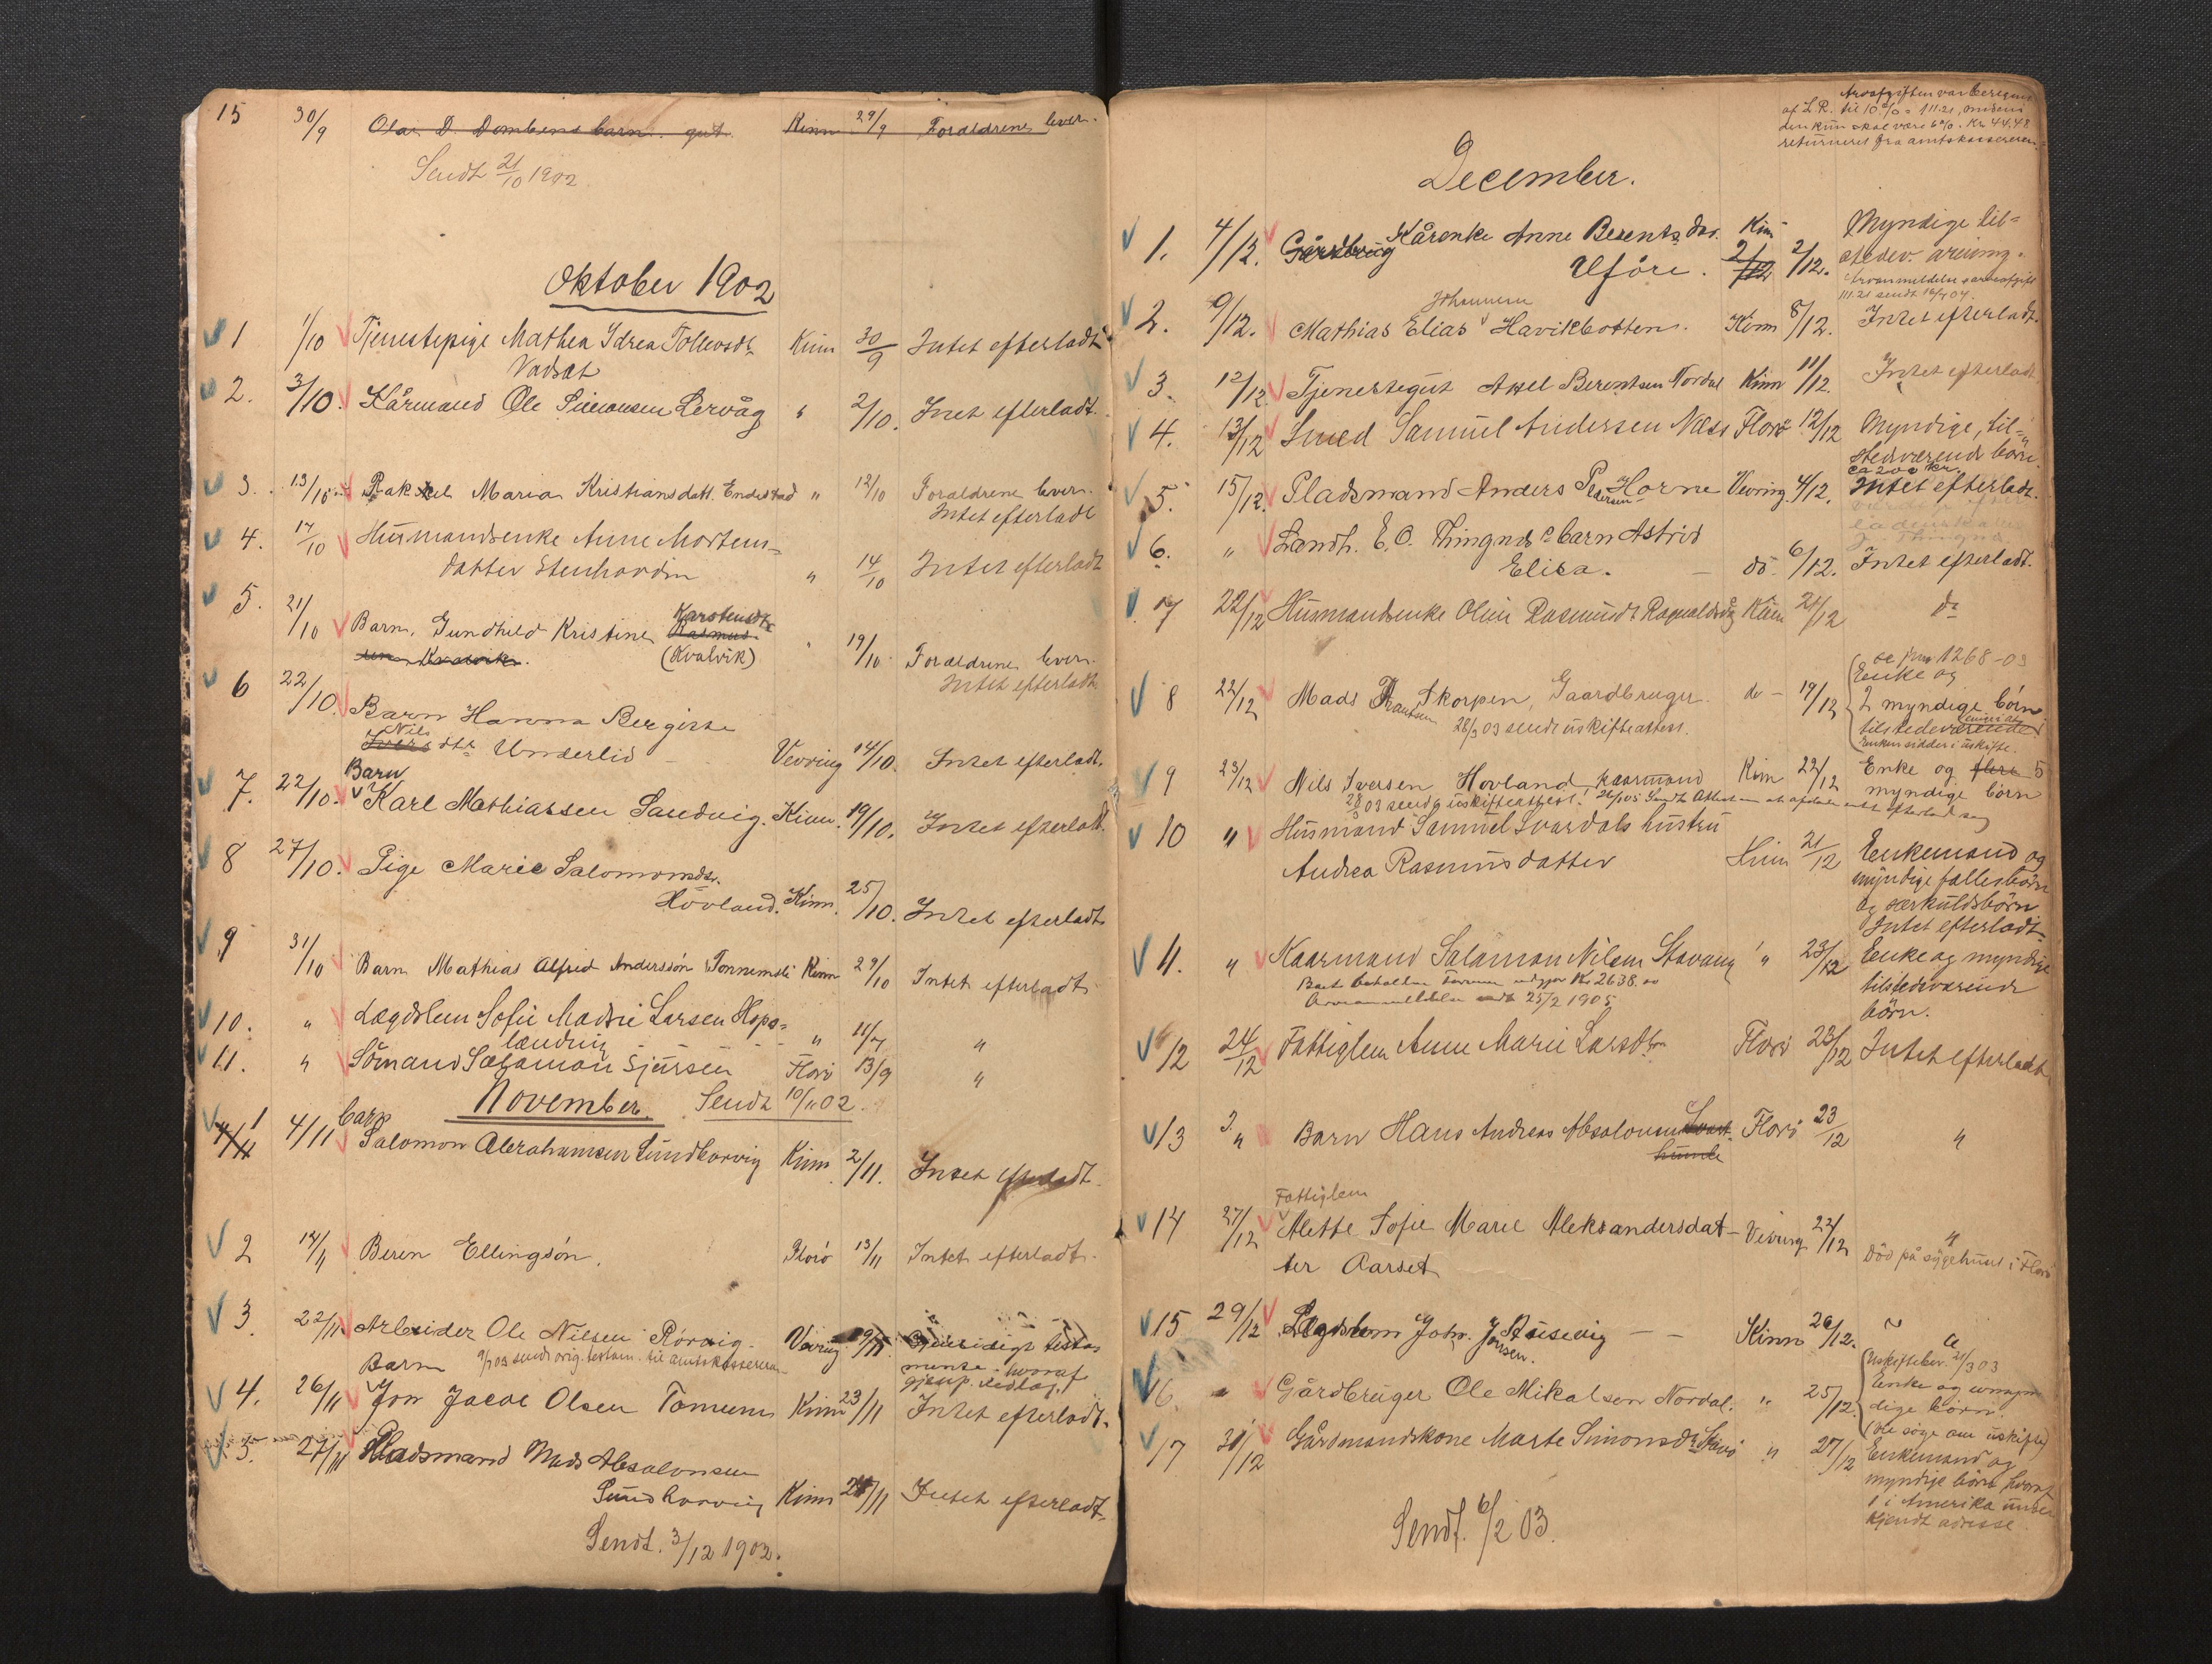 15 30/9 Olai D. Dombens barn. gut. Kinn 29/9 Forældrene lever.
Sendt 21/10 1902.
Oktober 1902
1 1/10 Tjenestepige Mathea Idrea Tollevsdtr Kinn 30/9 Intet efterladt
Vadset
2. 3/10. Kårmand Ole Simonsen Lervåg " 2/10. Intet efterladt.
3. 13/10 Rakel Maria Kristiansdatt. Endestad " 12/10 Forældrene lever.
Intet efterladt
4. 17/10 Husmandsenke Anne Mortens=
datter Stenhovden " 14/10 Intet efterladt
5. 21/10 Barn, Gundhild Kristine Karstensdtr Rasmus-
sen Kvalvik. (Kvalvik) " 19/10 Forældrene lever.
Intet efterladt
6 22/10. Barn Hanna Bergitte
Nils
Ivers dtr Underlid - Vevring 14/10. Intet efterladt.
Barn
7. 22/10. Karl Mathiassen Sandvig. Kinn. 19/10. Intet efterladt.
8 27/10. Pige Marie Salomonsdtr.
Hovland. Kinn. 25/10. Intet efterladt
9 31/10 Barn Mathias Alfred Anderssøn Tonnemsli Kinn 29/10 Intet efterladt
10. " Lægdslem Sofie Madsie Larsen Hops=
landeie " 11/7 "
11. " Sömand Salamon Sjursen Florö 13/9 "
November. Sendt 10/11 02.
Barn
1 4/11 Salomon Abrahamsen Sundhorvig Kinn 2/11. Intet efterladt.
2 14/11 Beren Ellingsøn. Florö 13/11 Intet efterladt.
3. 22/11. Arbeider Ole Nilsen Rörvig. Vevring 19/11. Gjensidigt testa
9/1 03 sendt orig. testam. til amtskassereren mente hvoraf
gjenp. vedlag.
Barn
4. 26/11 Jon Jacob Olsen Tonnems Kinn 23/11 Intet efterladt.
5. 27/11 Pladsmand Mads Absalonsen
Sundhorvig Kinn 24/11 Intet efterladt.
Sendt. 3/12 1902.
Arvafgiften var beregnet
af L.R. til 10% = 111.21, medens
den kun skal være 4%. Kr 44,48
returneret fra amtskassereren.
December.
1. 4/12. Gårdbrug Kårenke Anne Berentsdtr. Kinn Myndige til=
Ulföre. 2/12 2/12. stedev. arving.
Arveanmeldelse s arveafgift
111.21 sendt 16/1 04.
Johannesen
2. 9/12. Mathias Elias Havikbotten. Kinn 8/12. Intet efterladt.
3. 12/12. Tjenestegut Axel Berentsen Nordal Kinn 11/12. Intet efterladt
4. 13/12 Smed Samuel Andersen Næss Florö 12/12 Myndige, til=
stedværende börn.
ca 200 kr.
5. 15/12. Pladsmand Anders Pedersen Horne Vevring. 4/12. Intet efterladt.
6. " Landh. E. O. Thingnæs barn Astrid
Elisa. - do. 6/12. Intet efterladt.
7 22/12 Husmandsenke Oline Rasmusdt Ragnaldsvåg Kinn 21/12 do
se jrn. 1268-03
8 22/12 Mads Frantsen Skorpen, Gaardbruger. do - 19/12 Enke og
2 myndige börn
28/3 03 sendt uskifteattest. tilstedeværende
Enken sidder i uskifte.
9 23/12 Nils Iversen Hovland kaarmand Kinn 22/12 Enke og flere 5
myndige börn
10 " Husmand Samuel Svardals hustru
Andrea Rasmusdatter Kinn 21/12 Enkemand og
myndige fællesbörn
og særkuldsbörn
Intet efterladt.
11. " Kaarmand Salamon Nilsen Stavang " 23/12 Enke og myndige
tilstedeværende
börn.
Boets beholdne Formue udgjør Kr 2638.00
Arveanmeldelse sendt 25/2 1905
12 24/12 Fattiglem Anne Marie Larsdtr Florö 23/12 Intet efterladt.
13 " Barn Hans Andreas Absalonsen Svart-
humle Florö 23/12 "
Fattiglem
14 27/12 Alette Sofie Marie Aleksandersdat- Vevring 22/12 "
ter Aarset Död på sygehuset i Florö
15 29/12 Lægdslem Joh. Jonsen Husevig - - Kinn 26/12. "
Uskiftebev. 21/3 03
16. " Gårdbruger Ole Mikalsen Nordal. " 25/12. Enke og umyn
dige börn.
(vil søge om uskifte)
17 31/12 Gårdmandskone Marte Simonsdtr Stavö " 27/12 Enkemand og
myndige börn hvoraf
1 i Amerika uden
kjendt adresse.
Sendt. 6/2 03.